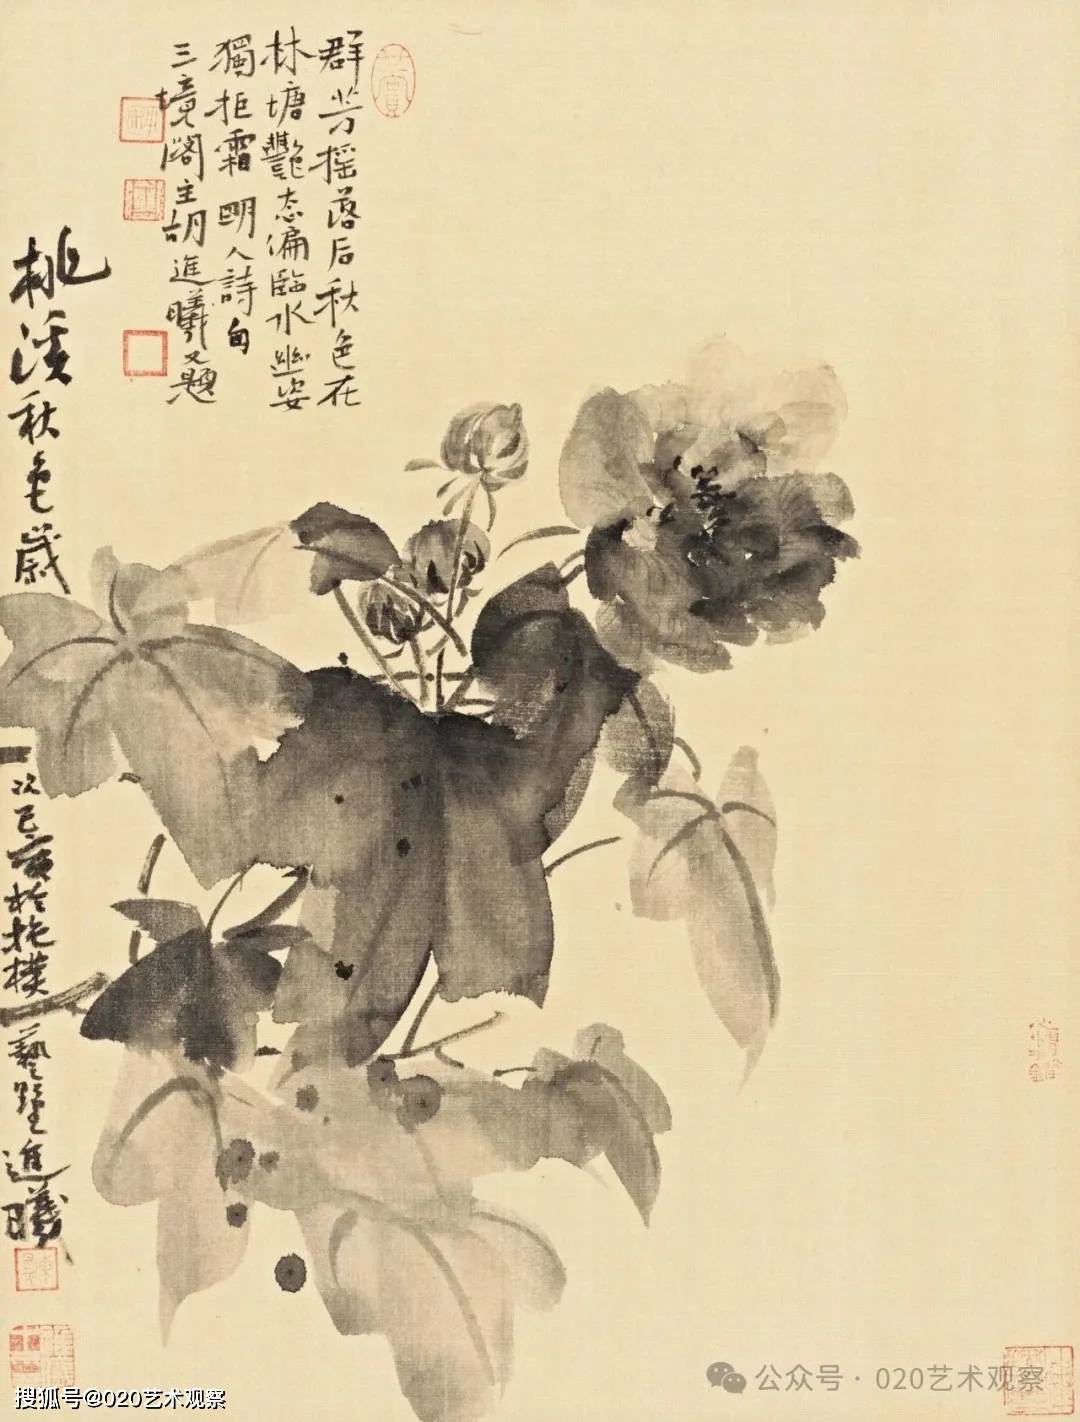 群芳摇落后秋色在
林塘艷态偏臨水幽姿
獨拒霜 明人詩句
三境閣主胡進曦又題
桃溪秋色歲次己亥於抱樸藝墅進曦
公众号 · 020艺术观察
搜狐号@020艺术观察